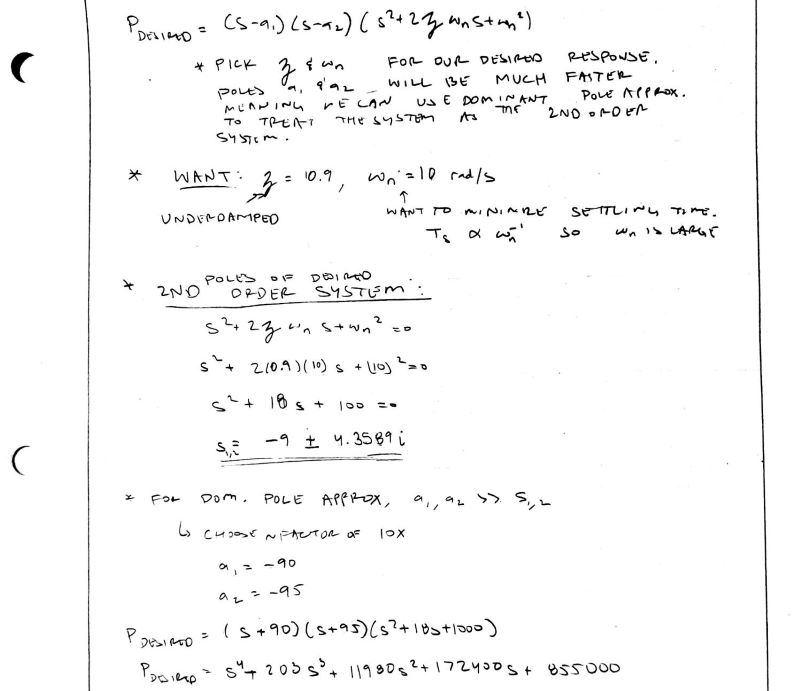 P DESIRED = (s-a₁)(s-a₂)(s²+2ζωₙs+ωₙ²)
* PICK ζ & ωₙ FOR OUR DESIRED RESPONSE.
POLES a₁ & a₂ WILL BE MUCH FASTER
MEANING WE CAN USE DOMINANT POLE APPROX.
TO TREAT THE SYSTEM AS THE 2ND ORDER
SYSTEM.
* WANT: ζ = 10.9, ωₙ = 10 rad/s
↑
UNDERDAMPED
WANT TO MINIMIZE SETTLING TIME.
Tₛ ∝ ωₙ⁻¹ SO ωₙ IS LARGE
* POLES OF DESIRED
2ND ORDER SYSTEM:
s²+2ζωₙs+ωₙ²=0
s² + 2(0.9)(10)s + (10)²=0
s² + 18s + 100 = 0
s₁,₂ = -9 ± 4.3589i
* FOR DOM. POLE APPROX, a₁, a₂ >> s₁,₂
↳ CHOOSE A FACTOR OF 10X
a₁ = -90
a₂ = -95
P DESIRED = (s+90)(s+95)(s²+18s+1000)
P DESIRED = s⁴+203s³+11980s²+172400s+855000